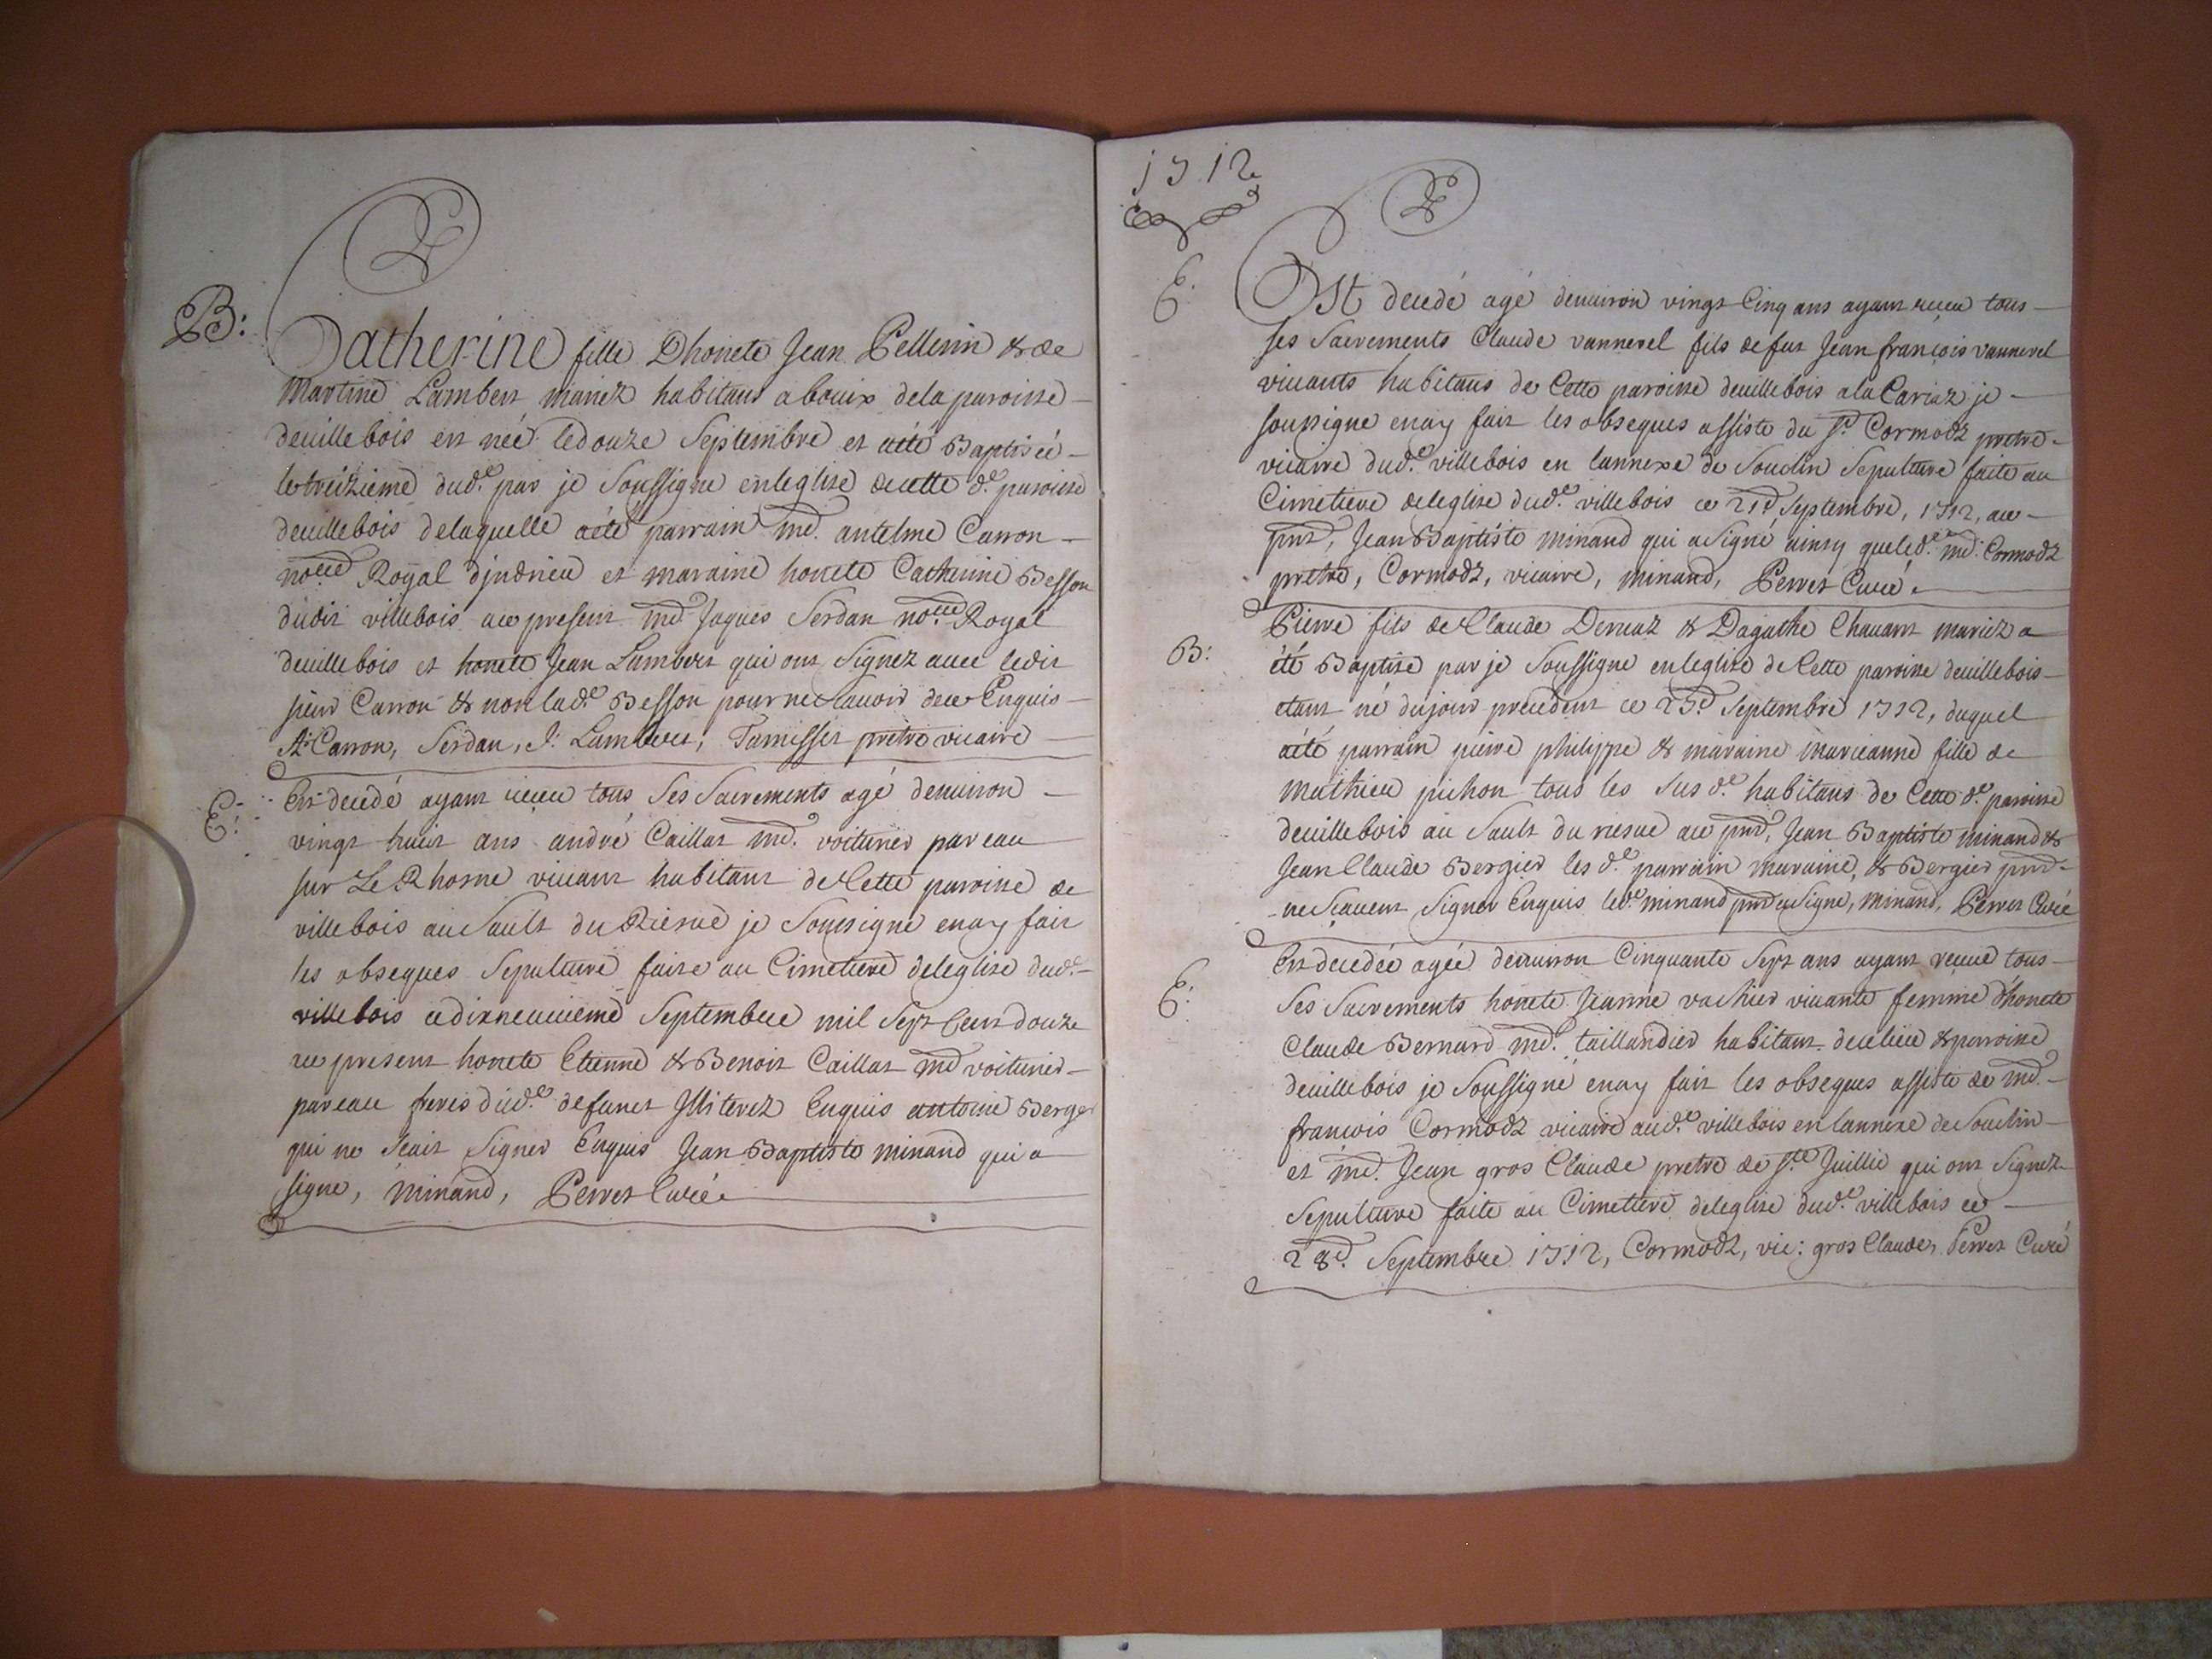 B:
Catherine fille Dhonete Jean Pellerin & de
Martine Lambert mariez habitans a bouix dela paroisse
deuillebois est née ledouze Septembre et aété Baptiséé
letreizieme dud.e par je Soussigne enleglise decette d.e paroisse
deuillebois delaquelle aété parrain md. antelme Carron
no.re Royal djndrieu et maraine honete Catherine Besson
dudit villebois ace present md Jaques Serdan no.re Royal
deuillebois et honete Jean Lambert qui ont Signez auec ledit
sieur Carron & non lad.e Besson pour ne Scauoir dece Enquis
A. Carron, Serdan, J. Lambert, Tamisset prétre vicaire
E:
Est decedé ayant reçeu tous Ses Sacrements agé denuiron
vingt huit ans andré Caillat md. voiturier par eau
sur Le Rhosne viuant habitant de Cette paroisse de
villebois au Sault du Rieme je Soussigne enay fait
les obseques Sepulture faite au Cimetiere deleglise dud.e
villebois cedixneuuieme Septembre mil Sept Cent douze
ace present honete Etienne & Benoit Caillat md voiturier
pareau freres dud.e defunct Jlliterez Enquis antoine Berger
qui ne Scait Signer Enquis Jean Baptiste minand qui a
signe, minand, Perret Curé
1712
E:
Est decedé agé denuiron vingt Cinq ans ayant receu tous
ses Sacrements Claude vannerel fils defut Jean françois vannerel
viuants habitans de Cette paroisse deuillebois ala Cariaz je
soussigne enay fait les obseques assiste du s.r Cormodz pretre
vicaire dud.e villebois en lannexe de Souclin Sepulture faite au
Cimetiere deleglise dud.e villebois ce 21.e Septembre, 1712, ace
pnt, Jean Baptiste minand qui a Signé ainsy queled.e md. Cormodz
pretre, Cormodz, vicaire, minand, Perret Curé
B:
Pierre fils de Claude Deruaz & Dagathe Chauant mariez a
été Baptise par je Soussigne enleglise de Cette paroisse deuillebois
etant né dujour precedent ce 25.e Septembre 1712, duquel
aété parrain pierre philippe & maraine marieanne fille de
mathieu pichon tous les Sus d.e habitans de Cette d.e paroisse
deuillebois au Sault du rieme ace pnt, Jean Baptiste minand &
Jean Claude Bergier les d.e parrain maraine, & Bergier pnt
ne Scauent Signer Enquis led.e minand pnt a Signe, minand, Perret Curé
E:
Est decedéé agéé denuiron Cinquante Sept ans ayant receue tous
Ses Sacrements honete Jeanne vachier viuante femme dhonete
Claude Bernard md. taillandier habitant decelieu & paroisse
deuillebois je Soussigné enay fait les obseques assiste de md.
françois Cormodz vicaire aud.e villebois en lannexe de Souclin
et md. Jean gros Claude pretre de s.te Juillie qui ont Signez
Sepulture faite au Cimetiere deleglise dud.e villebois ce
28.e Septembre 1712, Cormodz, vic: gros Claude, Perret Curé